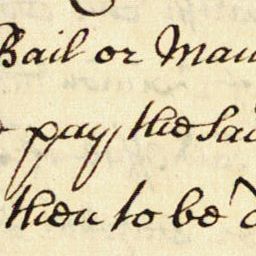 Bail or Main
pay the Sai
then to be